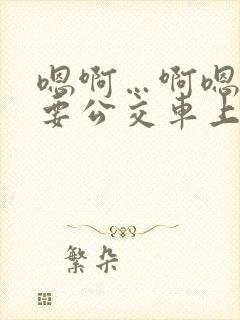 嗯啊…啊嗯
要公交车上
繁朵